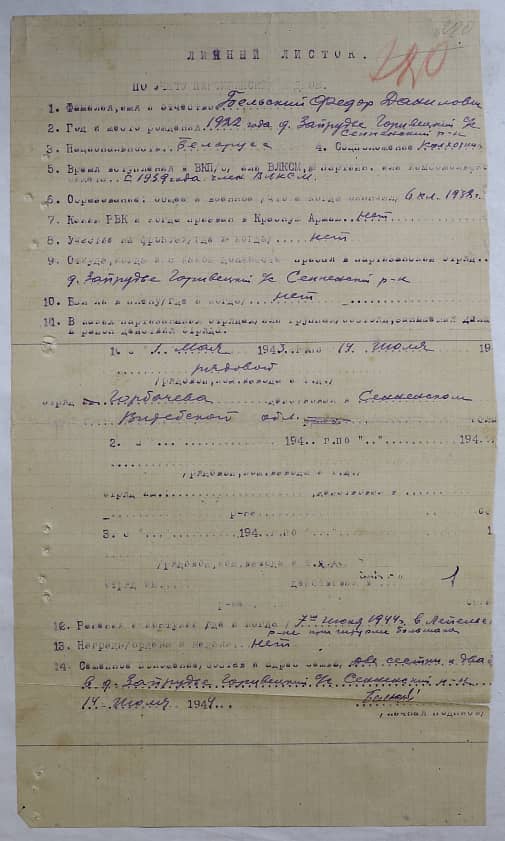 220
ЛИЧНЫЙ ЛИСТОК.
120
ПО УЧЕТУ ПАРТИЗАНСКИХ
1. Фамилия, имя и отчество Бельский Федор Данилович
2. Год и место рождения 1922 года д. Запрудье Горивецкий с/с
Сенненский р-н
3. Национальность Беларуса 4. Соцположение Колхозник
5. Время вступления в ВКП/б/ или ВЛКСМ,
С 1939 года член ВЛКСМ.
6. Образование: общее и военное /что и когда окончил/ 6 кл. 1938 г.
7. Каким РВК и когда призван в Красную Армию Нет
8. Участие на фронтах/где и когда/ Нет
9. Откуда, когда и с какой должности прибыл в партизанский отряд..
д. Запрудье Горивецкий с/с Сенненский р-н
10. Был ли в плену/где и когда/ Нет
11. В каких партизанских отрядах, или группах,
и район действия отряда.
1. с 1. Мая 1943 г. по 14 Июля 19
рядовой
/рядовой, ком. взвода и т.д./
отряд Горбачева действовал в Сенненском
Витебской обл.
2. с "... 194.. г. по ".." 194..
/рядовой, ком. взвода и т.д./
отряд им. действовал в
р-не
3. с "... 194.. г. по "..."
/рядовой, ком. взвода и т.д./
отряд им. действовал в
1
р-не
12. Ранения и контузии /где и когда/ 7го июня 1944 г. в Лепельс
р-не при
13. Награды/ордена и медали Нет
14. Семейное положение, состав и адрес семьи, две сестры и два
в д. Запрудье Горивецкий с/с Сенненский р-н
14 Июля 1944..
/личная подпись/